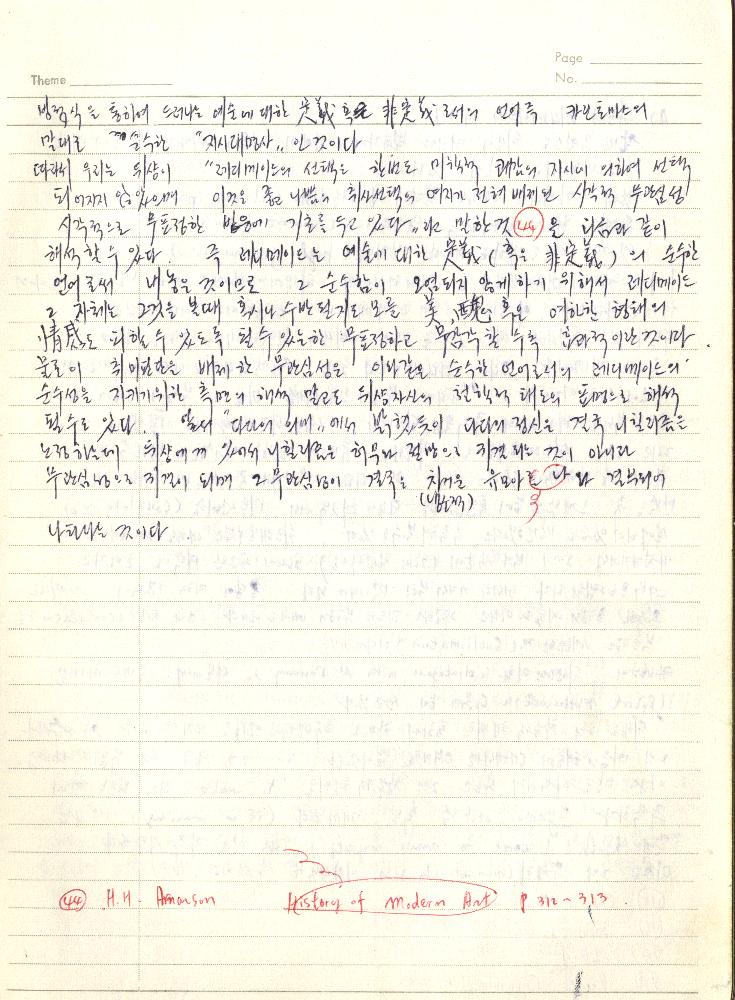 Page
Theme
No.
방정식을 통하여 드러나는 예술에 대한 定義 혹은 非定義로서의 언어 즉 카르토마스의
말대로 순수한 "지시대명사" 인 것이다
따라서 우리는 뒤샹이 "레디메이드의 선택은 한번도 미학적 쾌감의 지시에 의하여 선택
되어지지 않았으며 이것은 좋고 나쁨의 취사선택의 여지가 전혀 배제된 시각적 무관심성
시각적으로 무표정한 반응에 기초를 두고 있다" 라고 말한것 44 을 다음과 같이
해석할 수 있다. 즉 레디메이드는 예술에 대한 定義 (혹은 非定義) 의 순수한
언어로써 내놓은 것이므로 그 순수함이 오염되지 않게 하기 위해서 레디메이드
그 자체는 그것을 볼때 혹시나 수반될지도 모를 美, 醜 혹은 여하한 형태의
情感도 피할 수 있도록 될 수 있는한 무표정하고 무감각할 수록 효과적이란 것이다.
물론이 취미판단을 배제한 무관심성은 이와같은 순수한 언어로서의 레디메이드의
순수성을 지키기위한 측면의 해석 말고도 뒤샹자신의 철학적 태도의 표명으로 해석
될 수도 있다. 앞서 "다다의 의미" 에서 밝혔듯이 다다의 정신은 결국 니힐리즘으로
노정하는데 뒤샹에게 있어서 니힐리즘은 허무나 절망으로 직결되는 것이 아니라
무관심성으로 직결이 되며 그 무관심성이 결국은 차거운 유모아로 나와 결부되어
(냉소적)
나타나는 것이다.
44 H.H. Arnason History of Modern Art p 312~313.